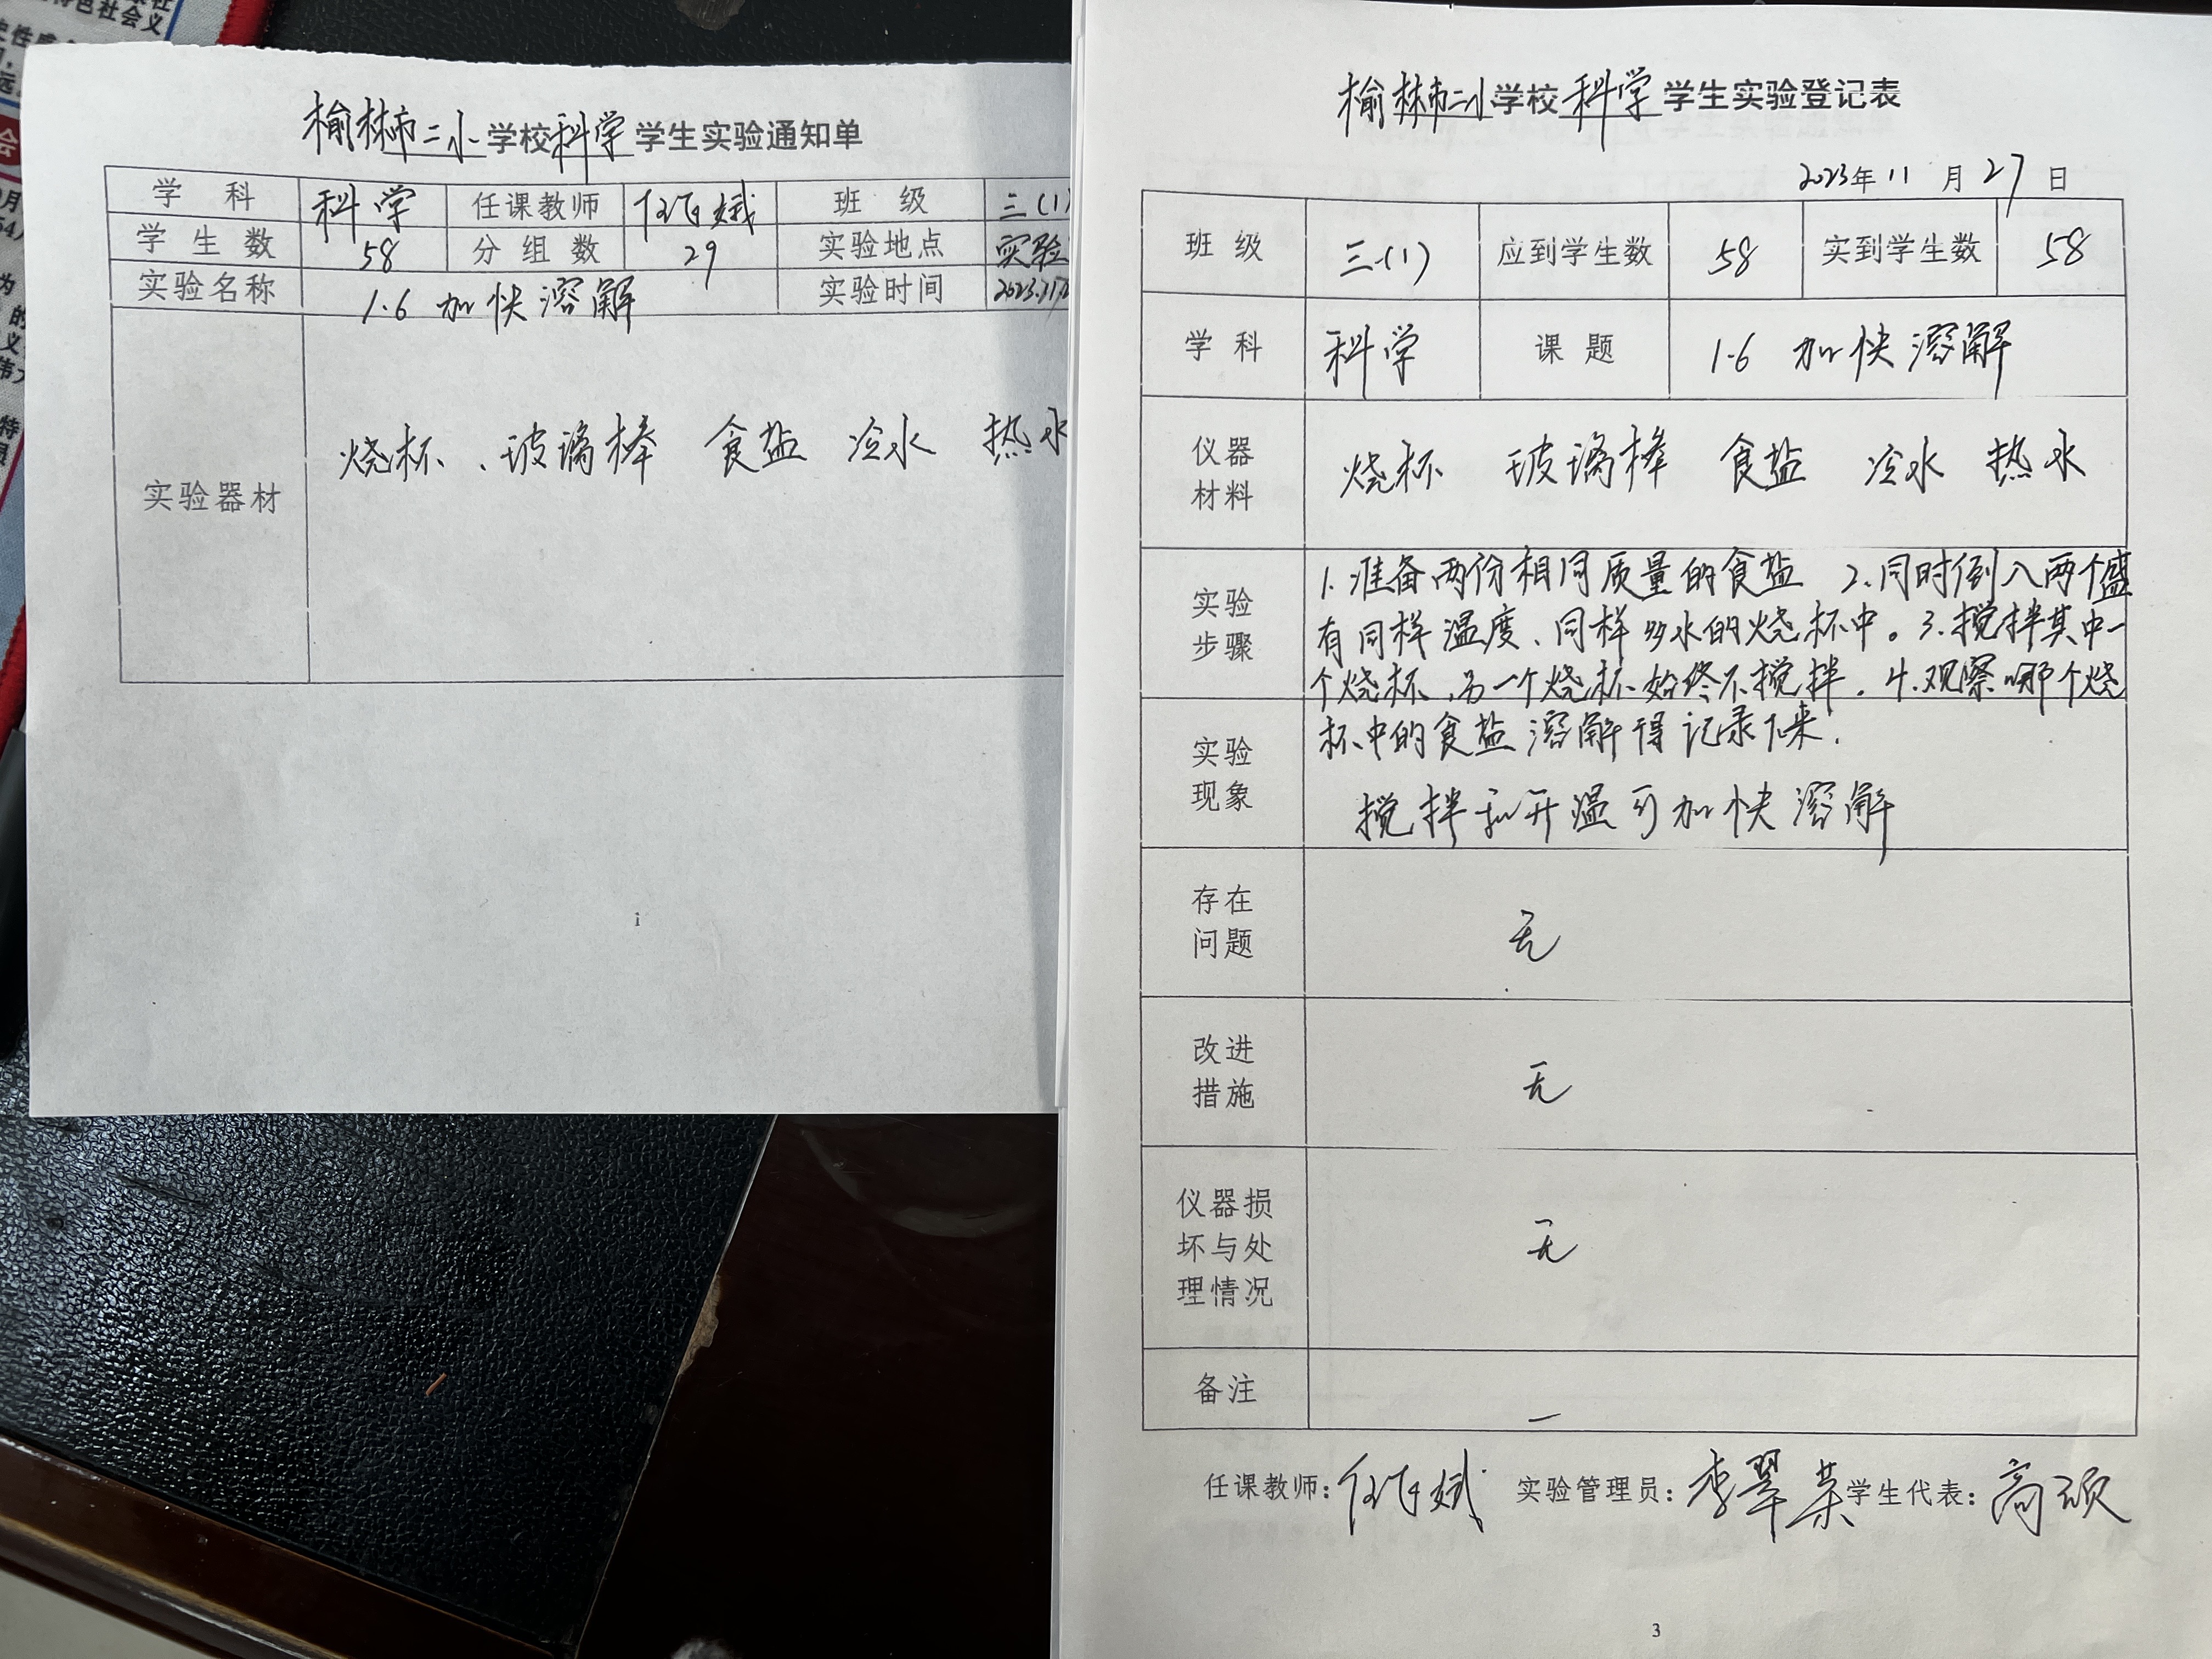 色社会义
榆林市二小学校科学学生实验通知单
学科 科学 任课教师 任飞斌 班级 三(1)
学生数 58 分组数 29 实验地点 实验
实验名称 1.6 加快溶解 实验时间 2023.11.
实验器材 烧杯、玻璃棒 食盐 冷水 热水
1
榆林市二小学校科学学生实验登记表
2023年11月27日
班级 三(1) 应到学生数 58 实到学生数 58
学科 科学 课题 1.6 加快溶解
仪器
材料
烧杯 玻璃棒 食盐 冷水 热水
实验
步骤
1.准备两份相同质量的食盐 2.同时倒入两个盛
有同样温度、同样多水的烧杯中。3.搅拌其中一
个烧杯,另一个烧杯始终不搅拌.4.观察哪个烧
杯中的食盐溶解得记录下来.
实验
现象
搅拌和升温可加快溶解
存在
问题
无
改进
措施
无
仪器损
坏与处
理情况
无
备注 一
任课教师: 实验管理员:李翠荣 学生代表:高硕
3